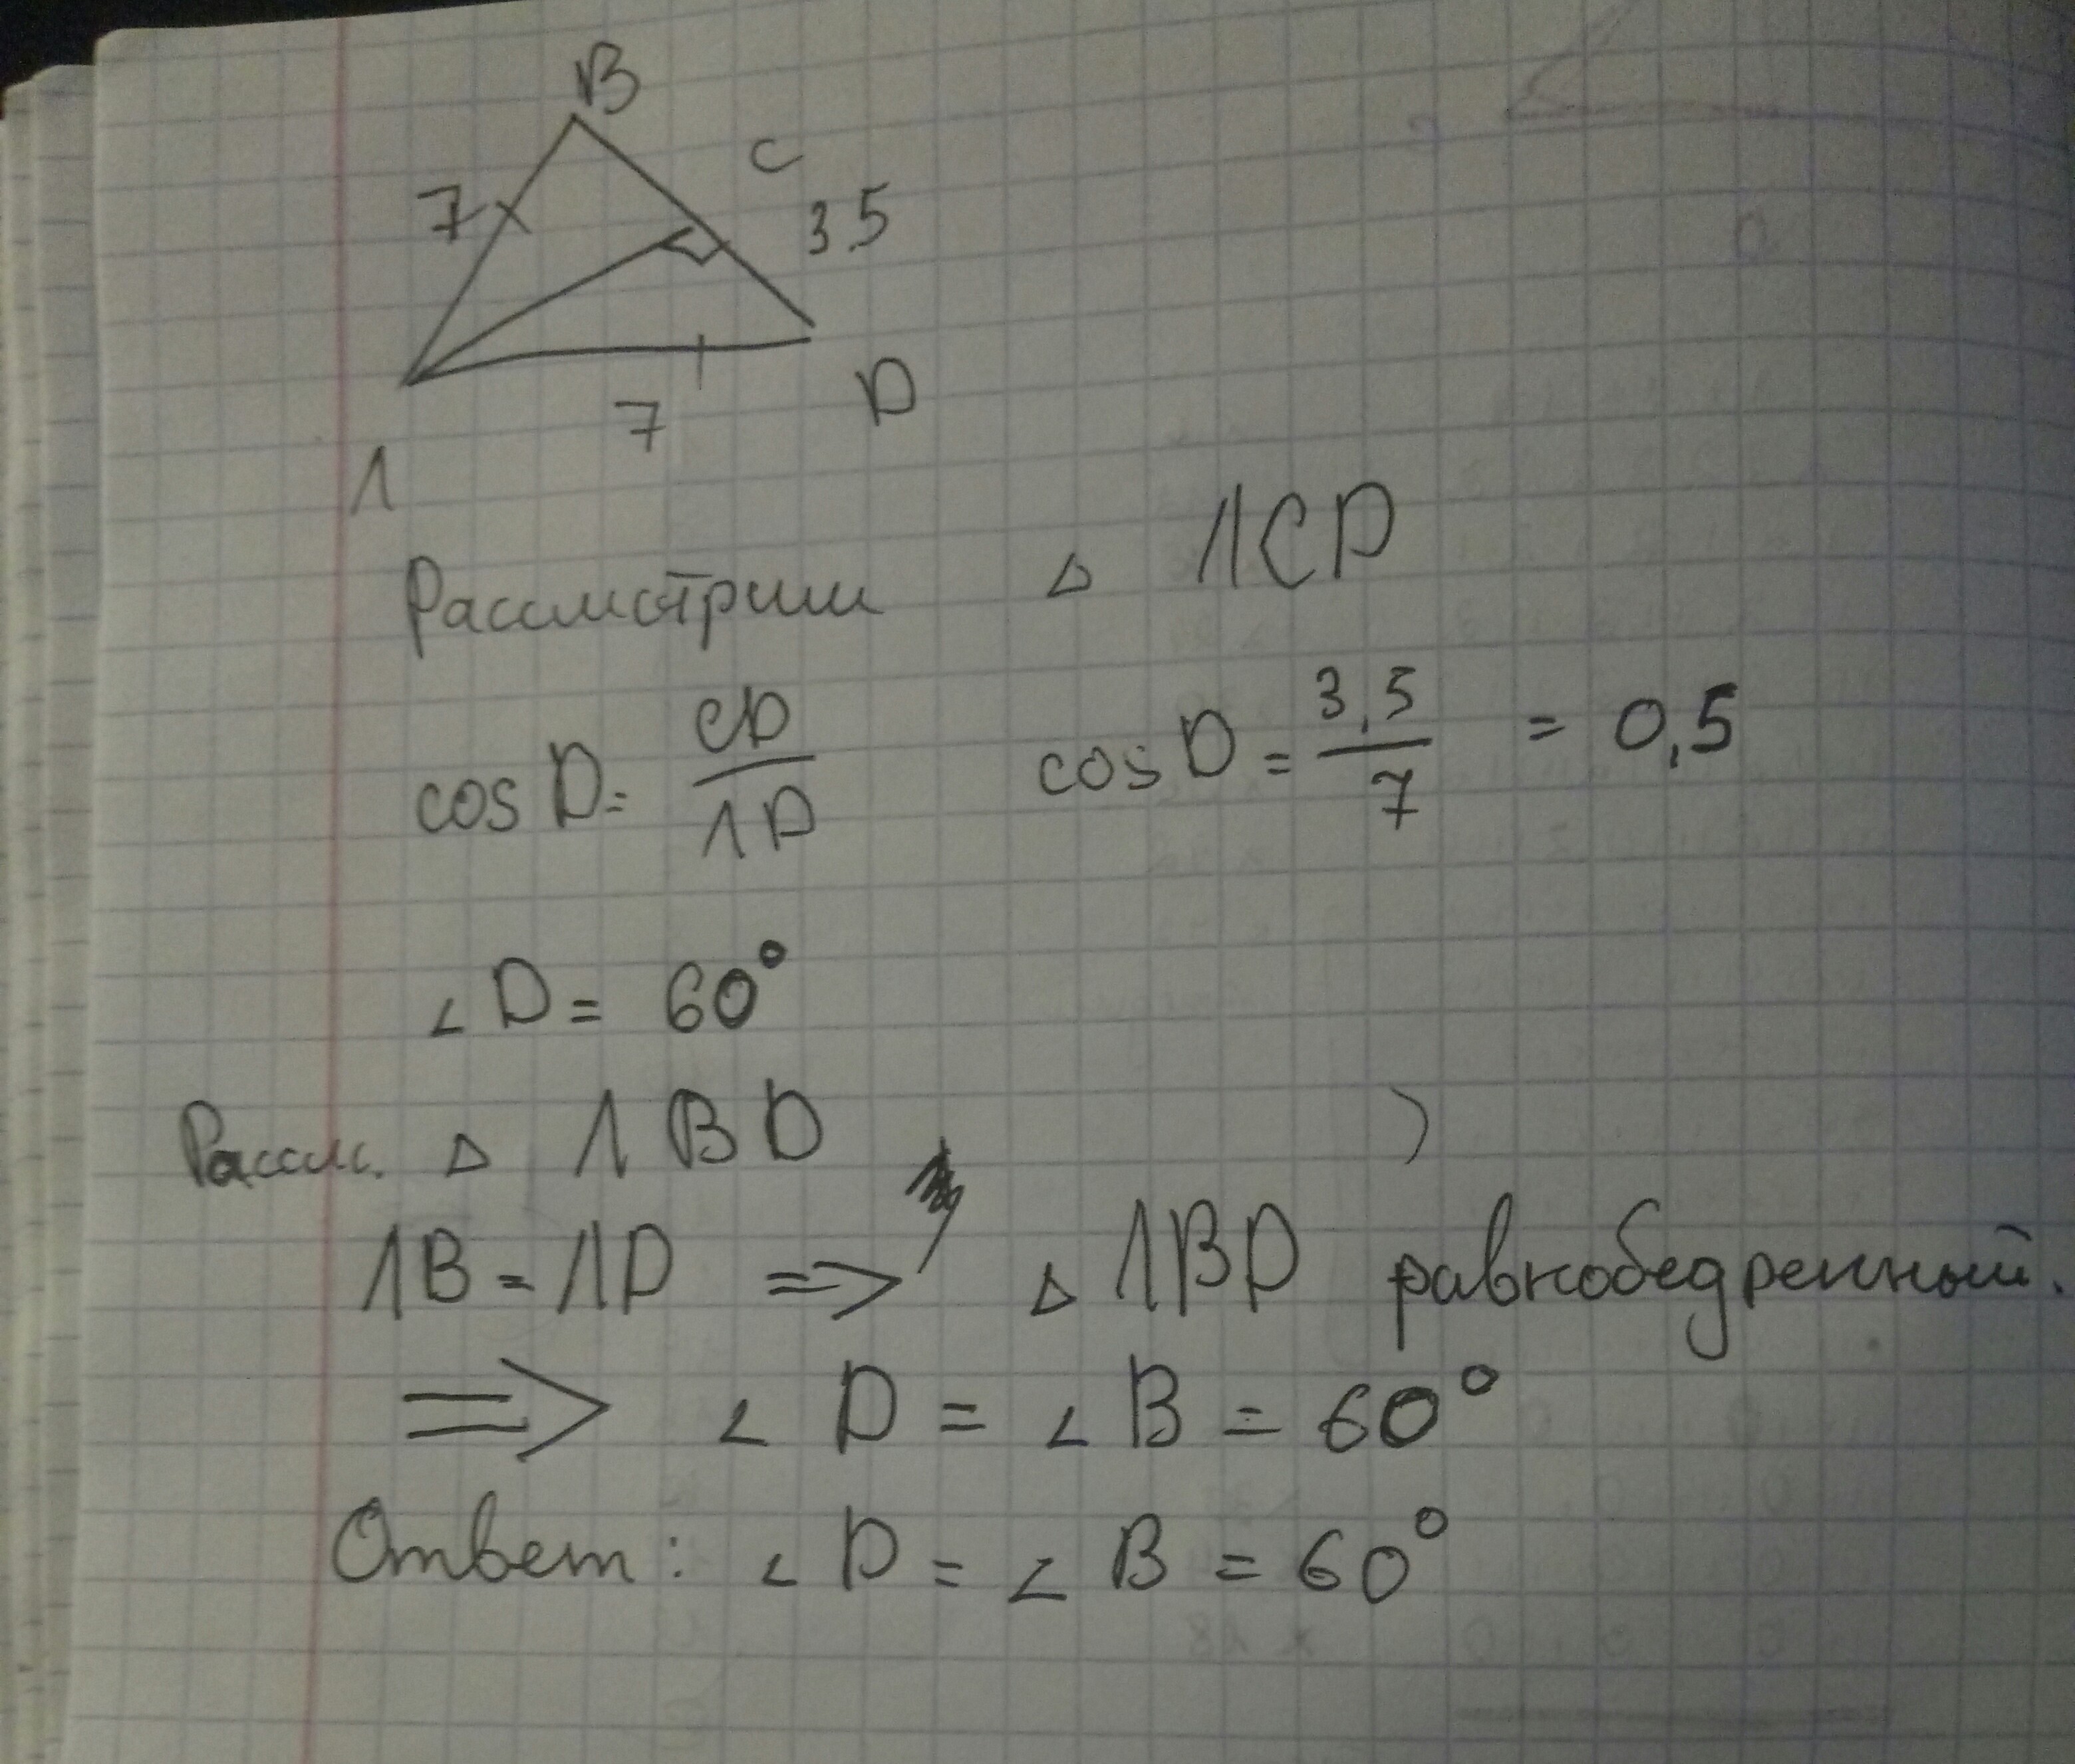 B
C
7
3.5
7
D
Λ
Рассмстрим ▵ ΛCD
cos D = CD/ΛD cos D = 3,5/7 = 0,5
∠D = 60°
Рассм. ▵ ΛBD
ΛB = ΛD => ▵ ΛBD равнобедренный.
=> ∠ D = ∠ B = 60°
Ответ: ∠ D = ∠ B = 60°